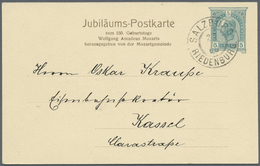 Jubiläums-Postkarte
zum 150. Geburtstage
Wolfgang Amadeus Mozarts
herausgegeben von der Mozartgemeinde
SALZBURG
RIEDENBURG
5 5
Herrn Oskar Krauße
Eisenbahnsekretär
Kassel
Clarastraße